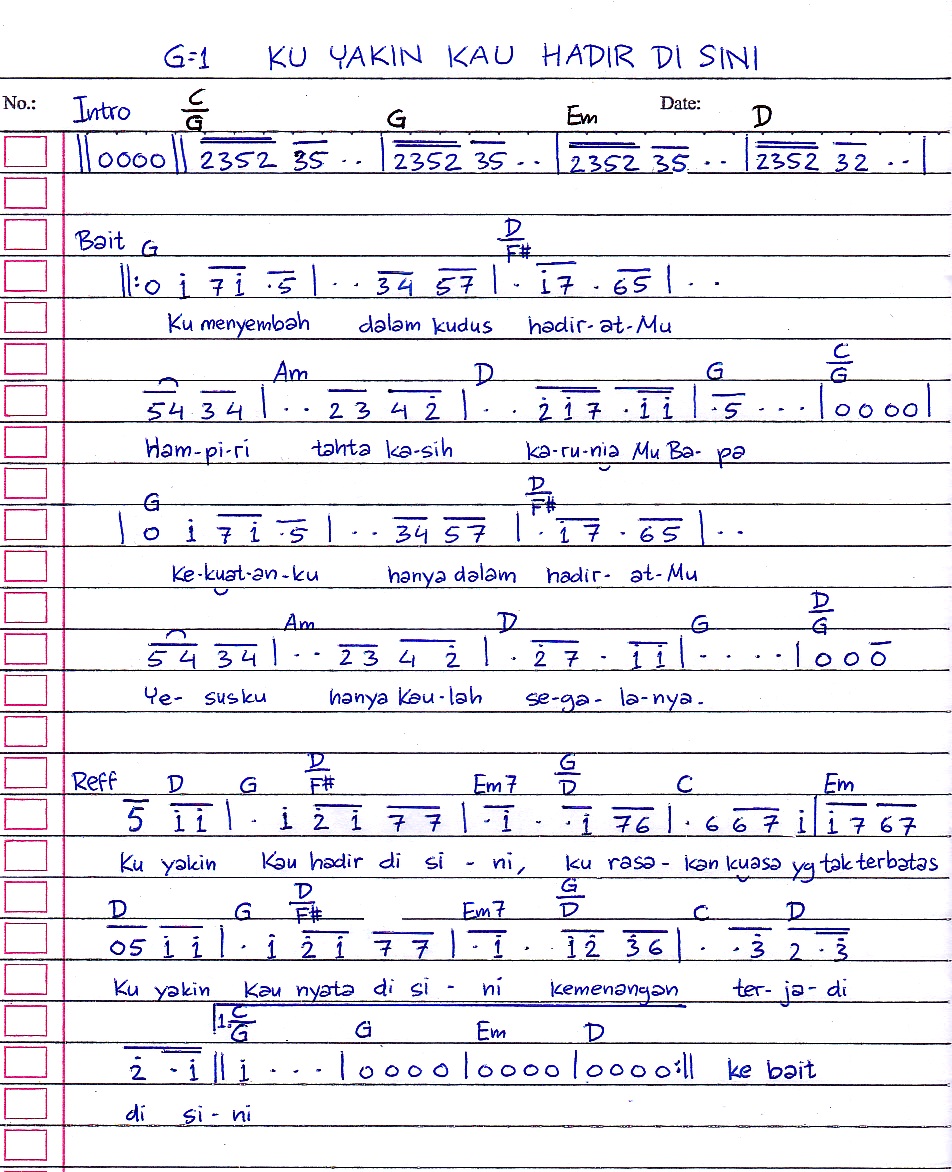 G=1 KU YAKIN KAU HADIR DI SINI
No.: Intro C/G G Em Date: D
||0000|| 2352 35 . . | 2352 35 . . | 2352 35 . . | 2352 32 . . |
Bait G D/F#
||: 0 i 7i .5 | . . 34 57 | . i7 . 65 | . .
Ku menyembah dalam kudus hadir-at-Mu
Am D G C/G
54 34 | . . 23 42̇ | . . 2̇i7 .ii | .5 . . . | 0000 |
Ham-pi-ri tahta ka-sih ka-ru-nia Mu Ba-pa
G D/F#
| 0 i 7i .5 | . . 34 57 | . i7 . 65 | . .
Ke-kuat-an-ku hanya dalam hadir-at-Mu
Am D G D/G
54 34 | . . 23 4 2̇ | . 2̇7 . ii | . . . . | 000
Ye-susku hanya Kau-lah se-ga-la-nya.
Reff D G D/F# Em7 G/D C Em
5 ii | . i 2̇i 77 | .i . .i 76 | . 6 67 i | i7 67
Ku yakin Kau hadir di si-ni, ku rasa-kan kuasa yg tak terbatas
D G D/F# Em7 G/D C D
05 ii | . i 2̇i 77 | .i . i2̇ 3̇6 | . .3̇ 2 .3̇
Ku yakin Kau nyata di si-ni kemenangan ter-ja-di
1. C/G G Em D
2̇ .i || i . . . | 0000 | 0000 | 0000 :|| ke bait
di si-ni